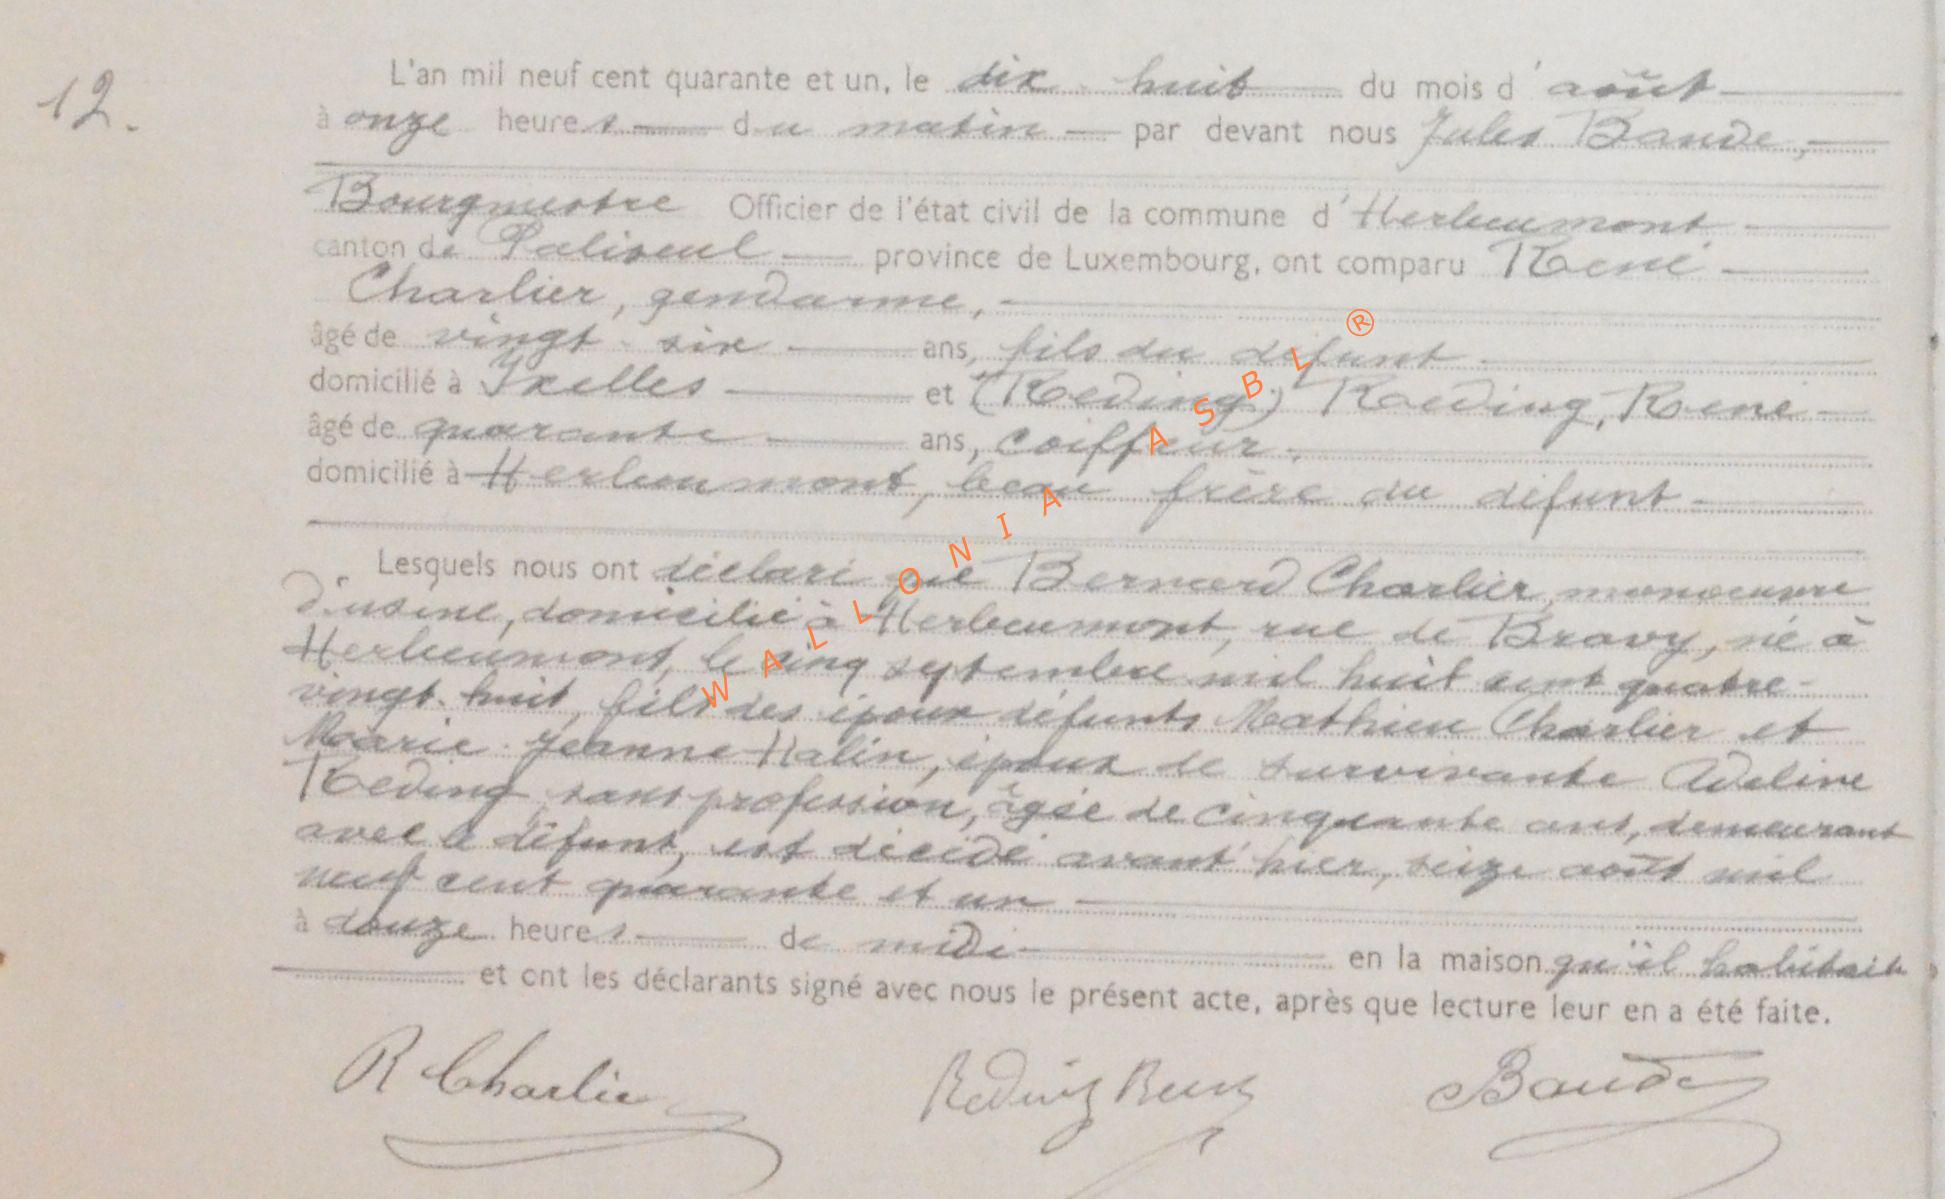 12.
L'an mil neuf cent quarante et un, le dix-huit du mois d'août
à onze heures du matin par devant nous Jules Baude,
Bourgmestre Officier de l'état civil de la commune d'Herbeumont
canton de Paliseul province de Luxembourg, ont comparu René
Charlier, gendarme,
âgé de vingt-six ans, fils du défunt
domicilié à Ixelles et (Reding) Roeding, René
âgé de quarante ans, coiffeur,
domicilié à Herbeumont, beau frère du défunt
Lesquels nous ont déclaré que Bernard Charlier, manoeuvre
d'usine, domicilié à Herbeumont, rue de Bravy, né à
Herbeumont, le cinq septembre mil huit cent quatre-
vingt-huit, fils des époux défunts Mathieu Charlier et
Marie-Jeanne Halin, époux de survivante Adeline
Reding, sans profession, âgée de cinquante ans, demeurant
avec le défunt, est décédé avant hier, seize août mil
neuf cent quarante et un
à douze heures de midi en la maison qu'il habitait
et ont les déclarants signé avec nous le présent acte, après que lecture leur en a été faite.
R Charlier Reding René Baude
WALLONIA ASBL ®